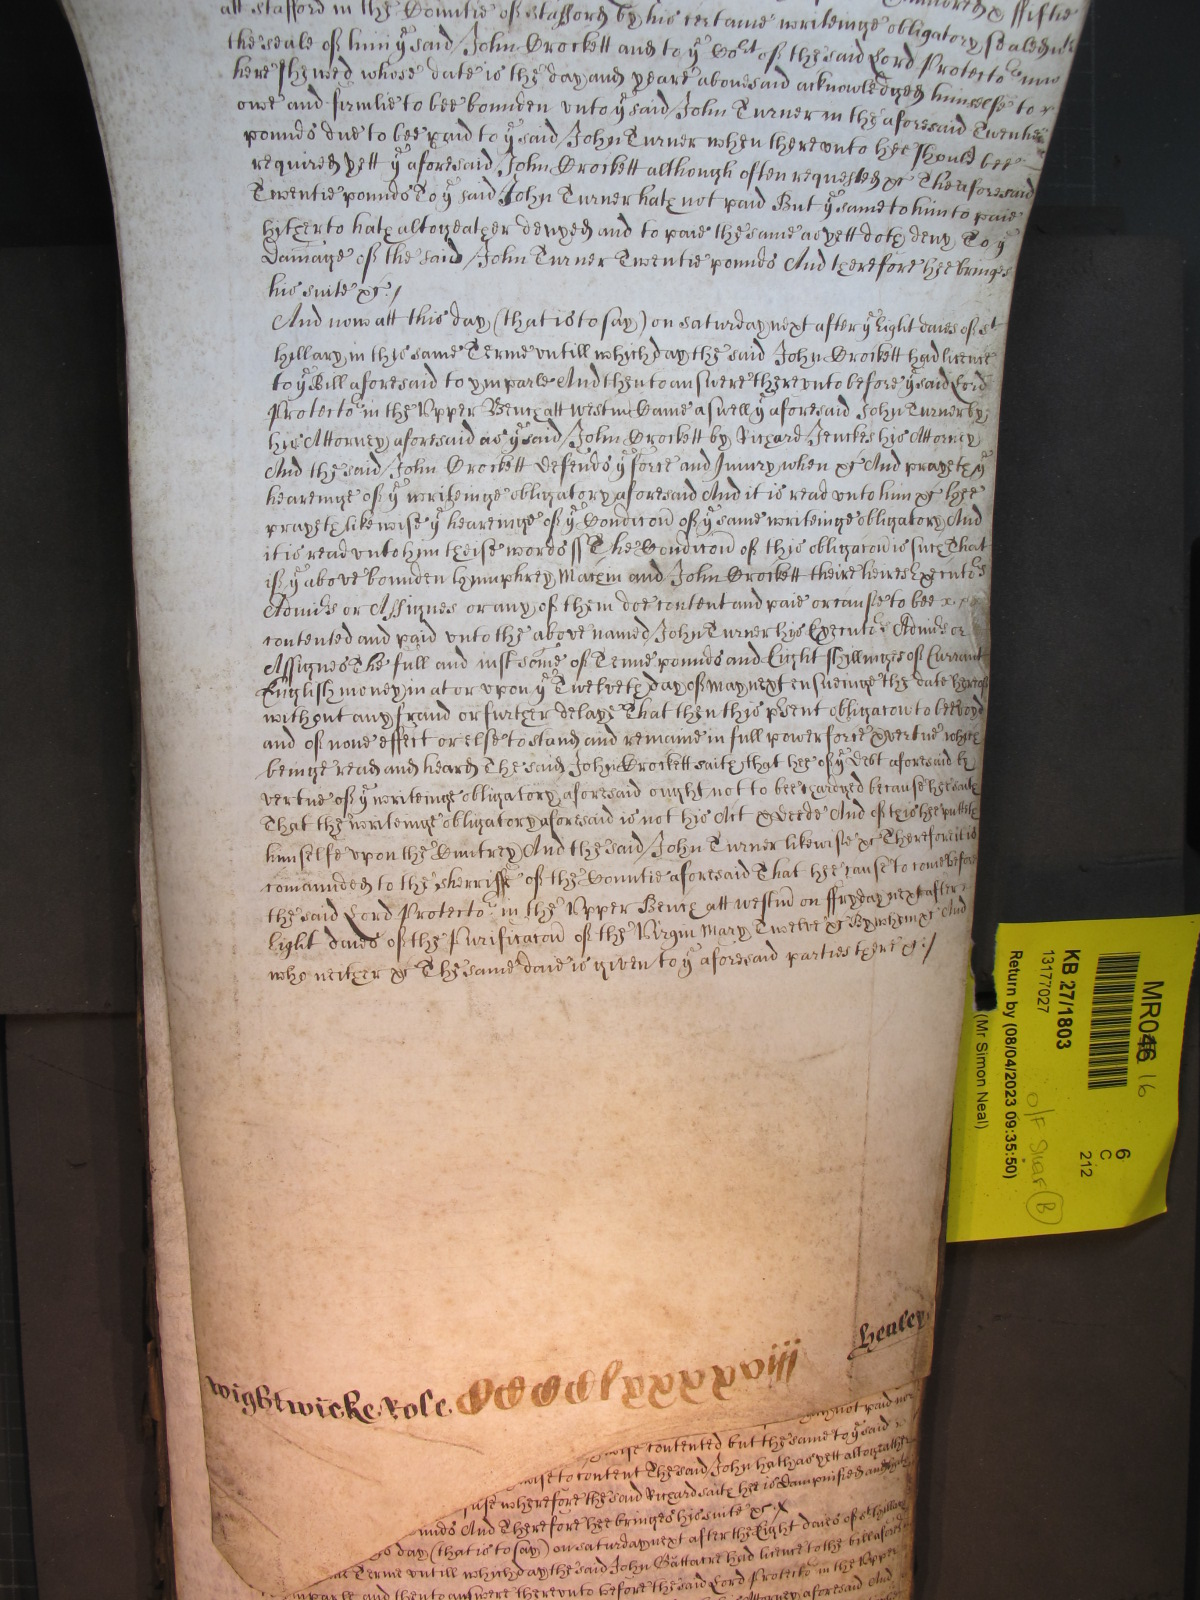 att Stafford in the Countie of Stafford by his certaine writeinge obligatory sealed wth
the seale of him ye said John Crockett and to ye Cort of the said Lord Protector now
here shewed whose date is the day and yeare abovesaid acknowledged himselfe to
owe and firmlie to bee bounden unto ye said John Turner in the aforesaid Twentie
pounds due to bee paid to ye said John Turner when thereunto hee should bee
required yett ye aforesaid John Crockett although often requested &c The aforesaid
Twentie pounds To ye said John Turner hath not paid But ye same to him to paie
hitherto hath altogeather denyed and to paie the same as yett doth deny To ye
Damage of the said John Turner Twentie pounds And therefore hee bringes
his suite &c /
And now att this day (that is to say) on Saturday next after ye Eight daies of St
Hillary in this same Terme untill which day the said John Crockett had licence
to ye Bill aforesaid to ymparle And then to answere thereunto before ye said Lord
Protector in the Upper Bench att Westm Came aswell ye aforesaid John Turner by
his Attorney aforesaid as ye said John Crockett by Richard Jenckes his Attorney
And the said John Crockett defends ye force and Iniury when &c And prayeth ye
heareinge of ye writeinge obligatory aforesaid And it is read unto him &c hee
prayeth likewise ye heareinge of ye Condicon of ye same writeinge obligatory And
it is read unto him theise words ss The Condicon of this obligacon is such That
if ye above bounden Humphrey Machin and John Crockett theire heires Executrs
Admirs or Assignes or any of them doe content and paie or cause to bee
contented and paid unto the above named John Turner his Executrs Admirs or
Assignes The full and iust some of Tenne pounds and Eight shillinges of Currant
English money in at or upon ye Twelveth day of May next ensueinge the date hereof
without any fraud or further delaye That then this psent obligacon to bee voyd
and of none effect or else to stand and remaine in full power force & vertue which
beinge read and heard The said John Crockett saith that hee of ye Debt aforesaid by
vertue of ye writeinge obligatory aforesaid ought not to bee charged because hee saith
That the writeinge obligatory aforesaid is not his Act & deede And of this hee putteth
himselfe upon the Cuntrey And the said John Turner likewise &c Therefore it is
comaunded to the sherriffe of the Countie aforesaid That hee cause to come before
the said Lord Protector in the Upper Bench att Westm on ffryday next after
Eight daies of the Purificacon of the Virgin Mary Twelve &c By whom &c And
who neither &c The same daie is given to ye aforesaid parties there &c /
Henley
Wightwicke Role CCCClxxxxviij
not paid nor
contented but the same to ye said
to content The said John hath as yett altogeather
wherefore the said Richard saith hee is dampnified and
And Therefore hee bringes his suite &c
day (that is to say) on Saturday next after the Eight daies of St Hillary
Terme untill which day the said John Gattacre had licence to the bill aforesaid
and then to answere thereunto before the said Lord Protector in the Upper
Attorney aforesaid And
MR046 16
KB 27/1803
13177027
Return by (08/04/2023 09:35:50)
(Mr Simon Neal)
6
C
212
O/F Shelf B